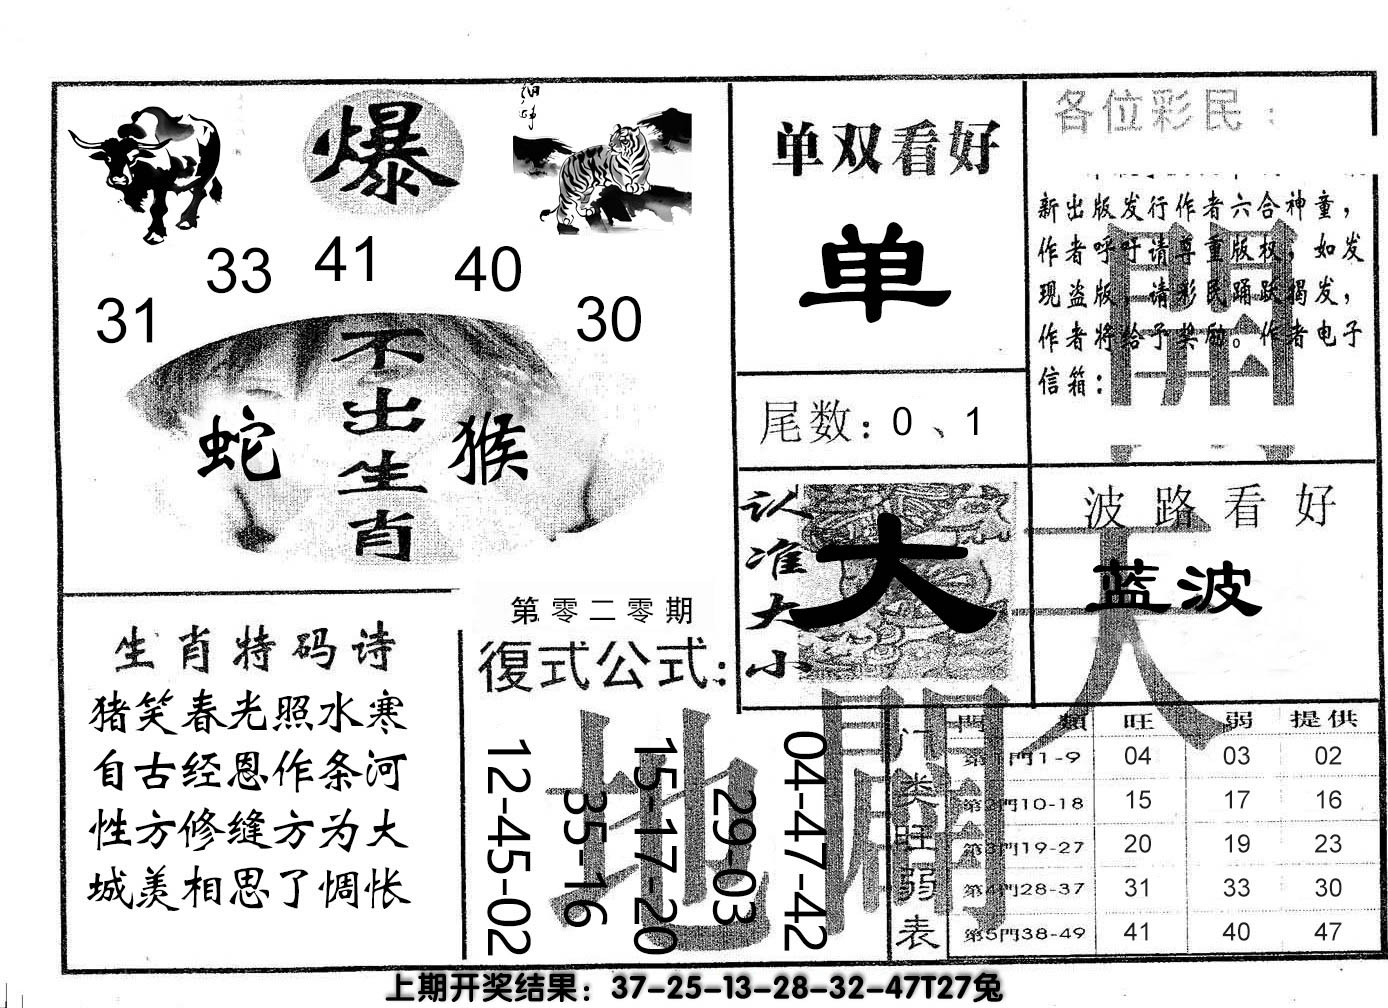 爆
33
41
40
31
30
不出生肖
蛇
猴
单双看好
单
尾数：0、1
各位彩民：
新出版发行作者六合神童，
作者呼吁请尊重版权，如发
现盗版，请彩民踊跃揭发，
作者将给予奖励。作者电子
信箱：
開
认准大小
大
波路看好
蓝波
天
生肖特码诗
猪笑春光照水寒
自古经恩作条河
性方修缝方为大
城羡相思了惆怅
第零二零期
復式公式：
12-45-02
35-16
15-17-20
29-03
04-47-42
地
門类旺弱表
門類 旺 弱 提供
第1門1-9 04 03 02
第2門10-18 15 17 16
第3門19-27 20 19 23
第4門28-37 31 33 30
第5門38-49 41 40 47
上期开奖结果：37-25-13-28-32-47T27兔